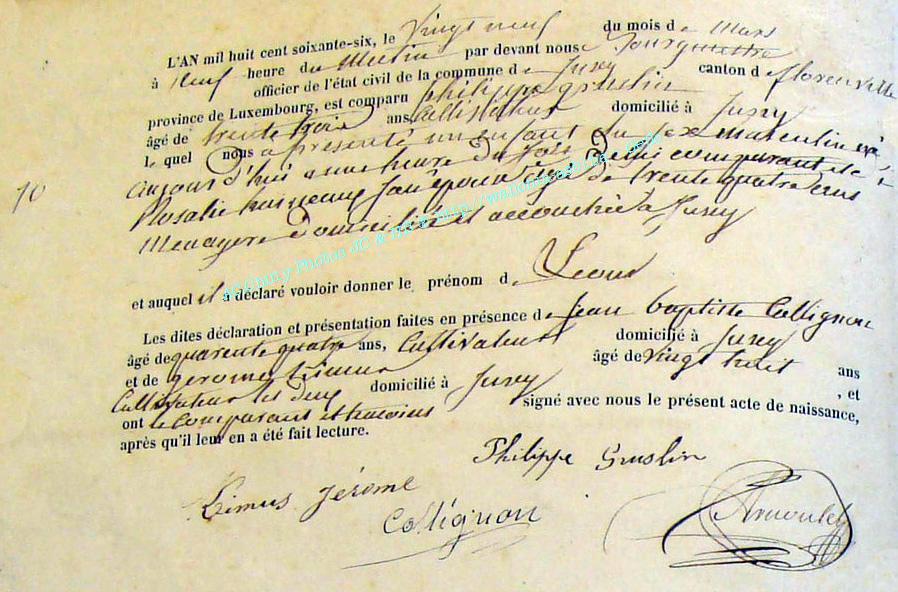 L'AN mil huit cent soixante-six, le Vingt neuf du mois de Mars
à neuf heure du Matin par devant nous Bourgmestre
officier de l'état civil de la commune d e Jusey canton d e florenville
province de Luxembourg, est comparu philippe Gruslin
âgé de trente trois ans, Cultivateur domicilié à Jusey
le quel nous a présenté un enfant du sex masculin né
aujourd'hui a une heure du
Rosalie son épouse agé de trente quatre ans
Menagère domicilié et accouchée à Jusey
10
et auquel il a déclaré vouloir donner le prénom d
Les dites déclaration et présentation faites en présence d e Jean baptiste Collignon
âgé de quarente quatre ans, Cultivateur domicilié à Jusey
et de gerome âgé de vingt huit ans
Cultivateur les deux domicilié à Jusey , et
ont le comparant et temoins signé avec nous le présent acte de naissance,
après qu'il leur en a été fait lecture.
Philippe Gruslin
jérome
Collignon
Arnould